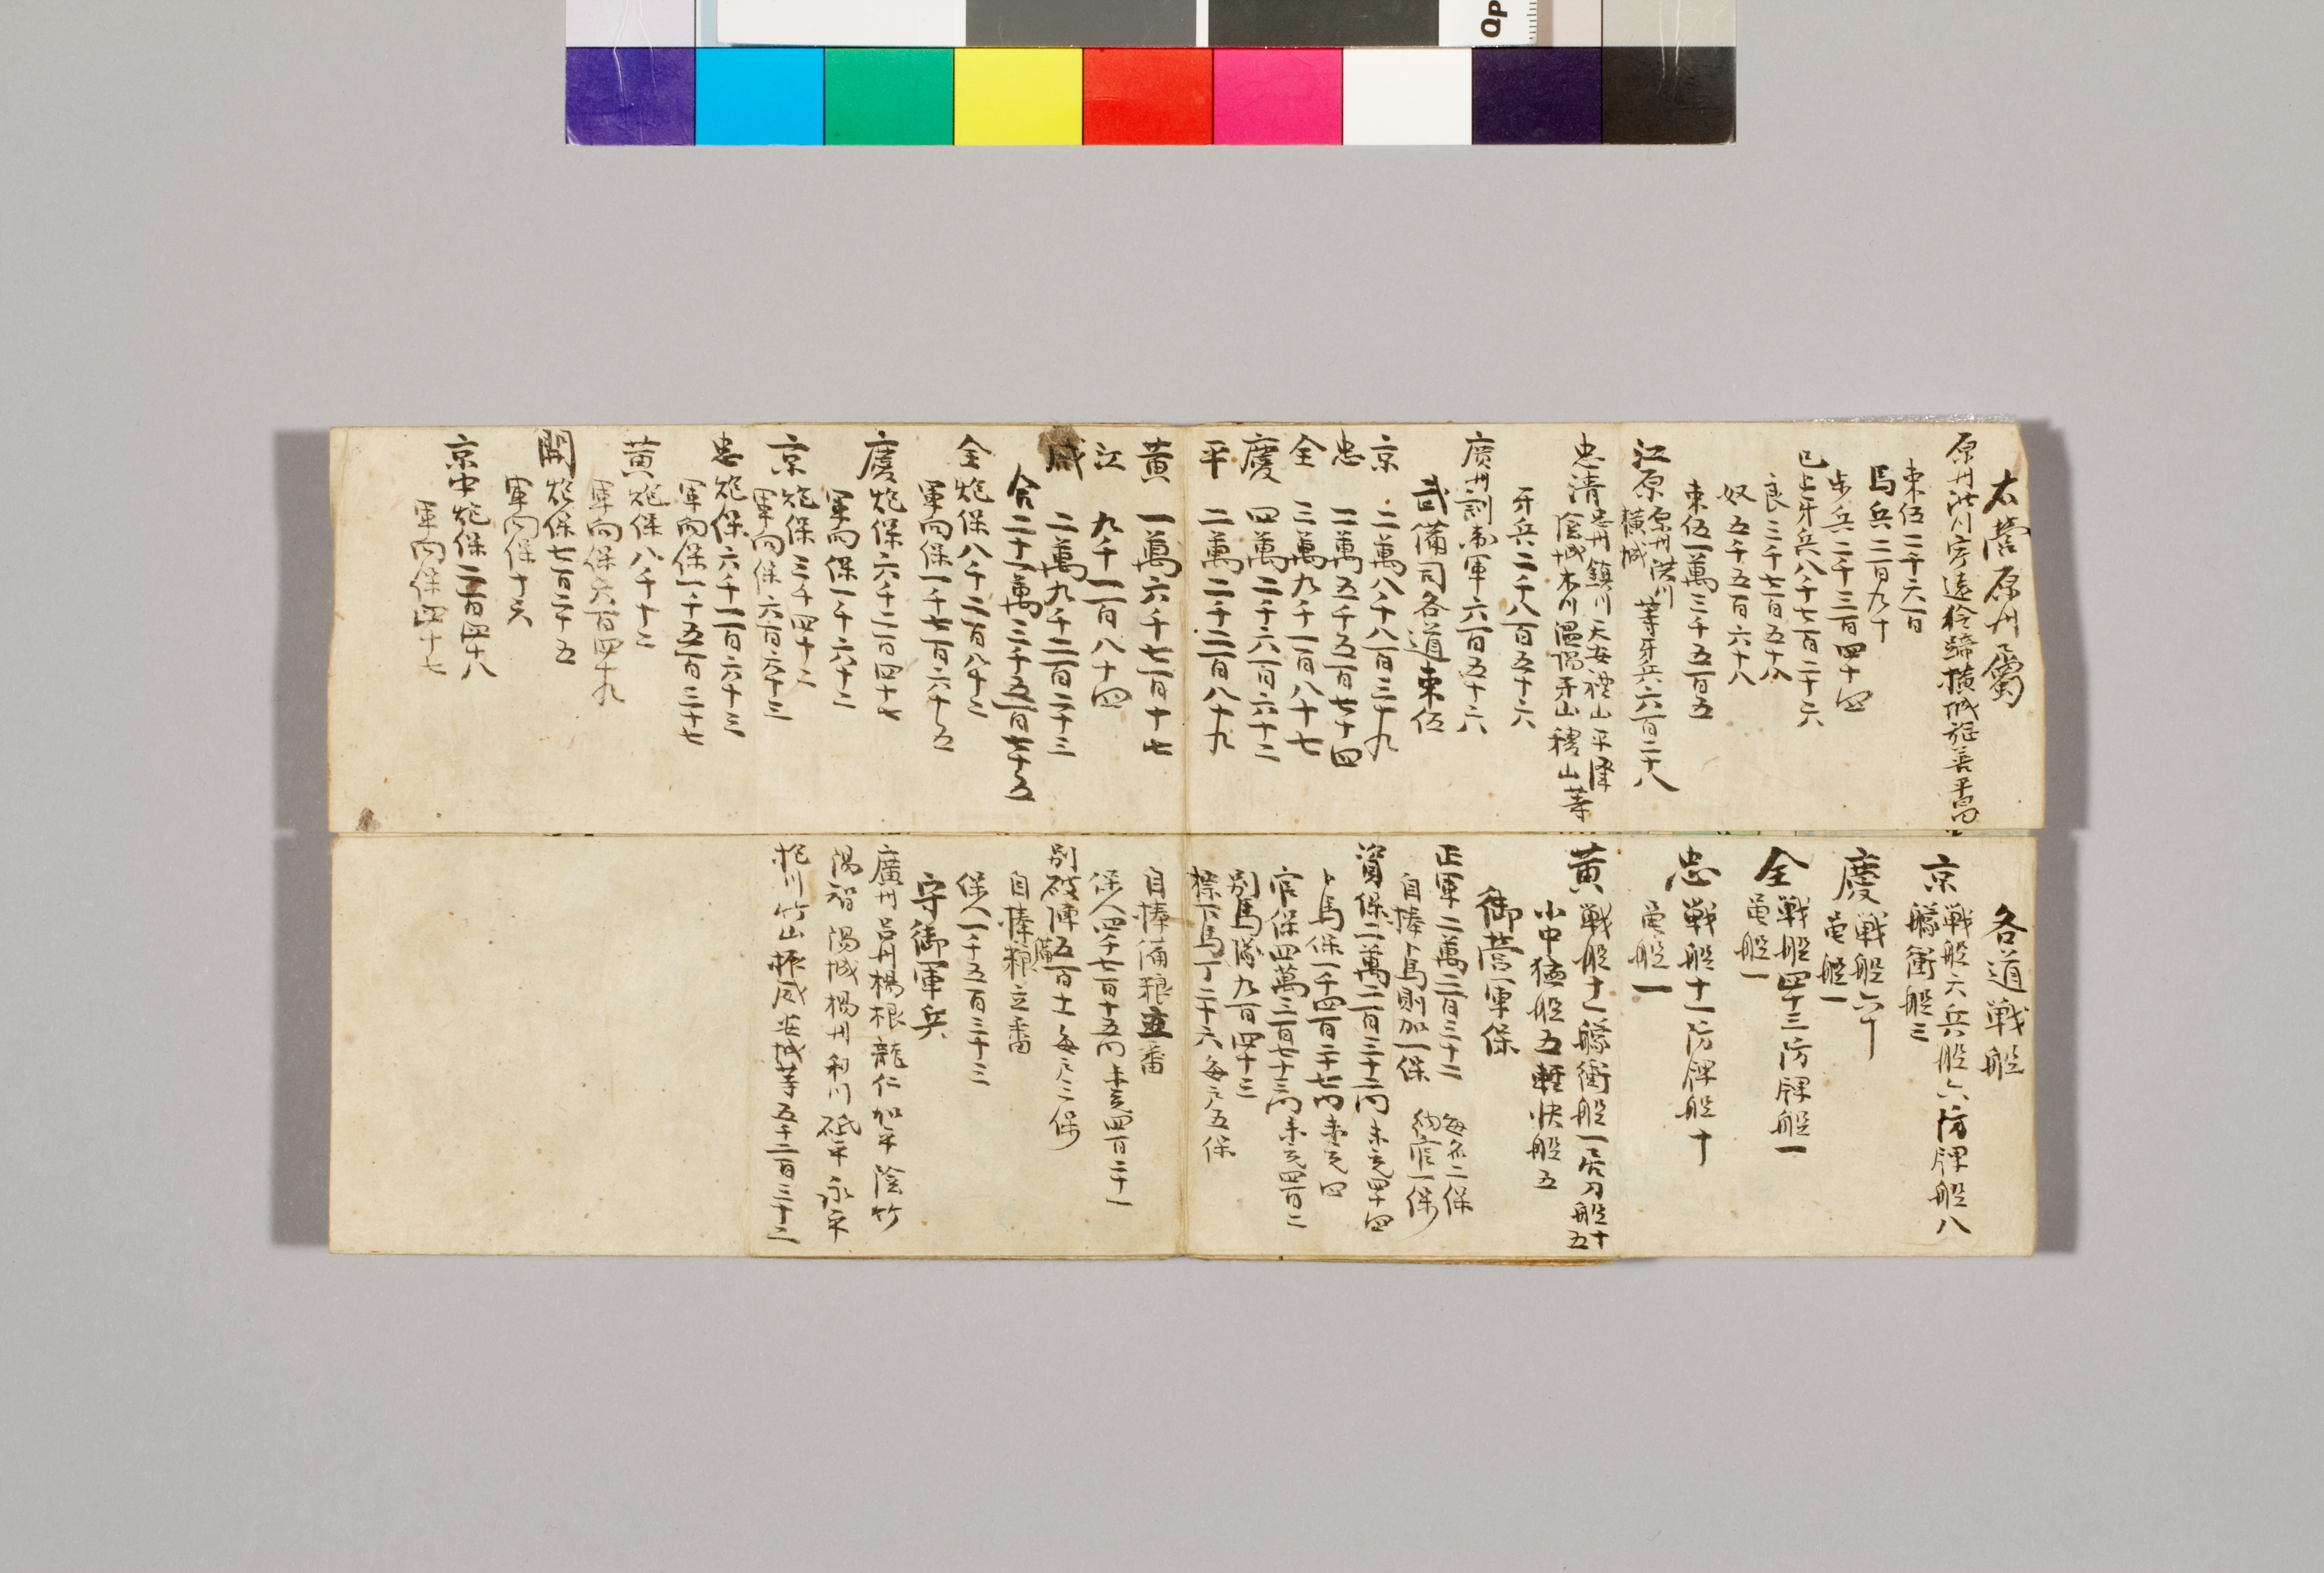 右營原州屬
原州洪川寧遠伶蹄橫城旌善平昌
束伍二千六百
馬兵二百九十
步兵二千三百四十四
已上牙兵八千七百二十六
良三千七百五十八
奴五千五百六十八
束伍一萬三千五百五
江原原州洪川橫城等牙兵六百二十八
忠清忠州鎮川天安禮山平澤
陰城木川溫陽牙山稷山等
牙兵二千八百五十六
廣州訓御軍六百五十六
武備司各道束伍
京 二萬八千八百三十九
忠 二萬五千五百七十四
全 三萬九千一百八十七
慶 四萬二千六百六十二
平 二萬二千二百八十九
黃 一萬六千七百十七
江 九千一百八十四
咸 二萬九千二百二十三
合二十一萬三千五百七十五
全 炮保八千二百八十二
軍向保一千七百六十五
慶 炮保六千二百四十七
軍向保一千六十二
京 炮保三千四十二
軍向保六百六十三
忠 炮保六千一百六十三
軍向保一千五百三十七
黃 炮保八千十二
軍向保六百四十九
開 炮保七百二十五
軍向保十六
京中炮保二百四十八
軍向保四十七
各道戰船
京 戰船六兵船六防牌船八
艨衝船三
慶 戰船六十
龜船一
全 戰船四十三防牌船一
龜船一
忠 戰船十一防牌船十
龜船一
黃 戰船十一艨衝船一居刀船十五
小中猛船五輕快船五
御營軍保
正軍二萬二百三十二 每名二保
自捧卜馬則加一保 納官一保
資保二萬二百三十二內未充四十四
卜馬保一千四百二十七內未充四
官保四萬三百七十三內未充四百二
別馬隊九百四十三
標下馬丁二十六每名五保
自捧備粮立番
保人四千七百十五內未充四百二十一
別破陣五百十 每名三保
自捧粮立番
保人一千五百三十三
守御軍兵
廣州呂州楊根龍仁加平陰竹
陽智陽城楊州利川砥平永平
抱川竹山振威安城等五千二百三十二